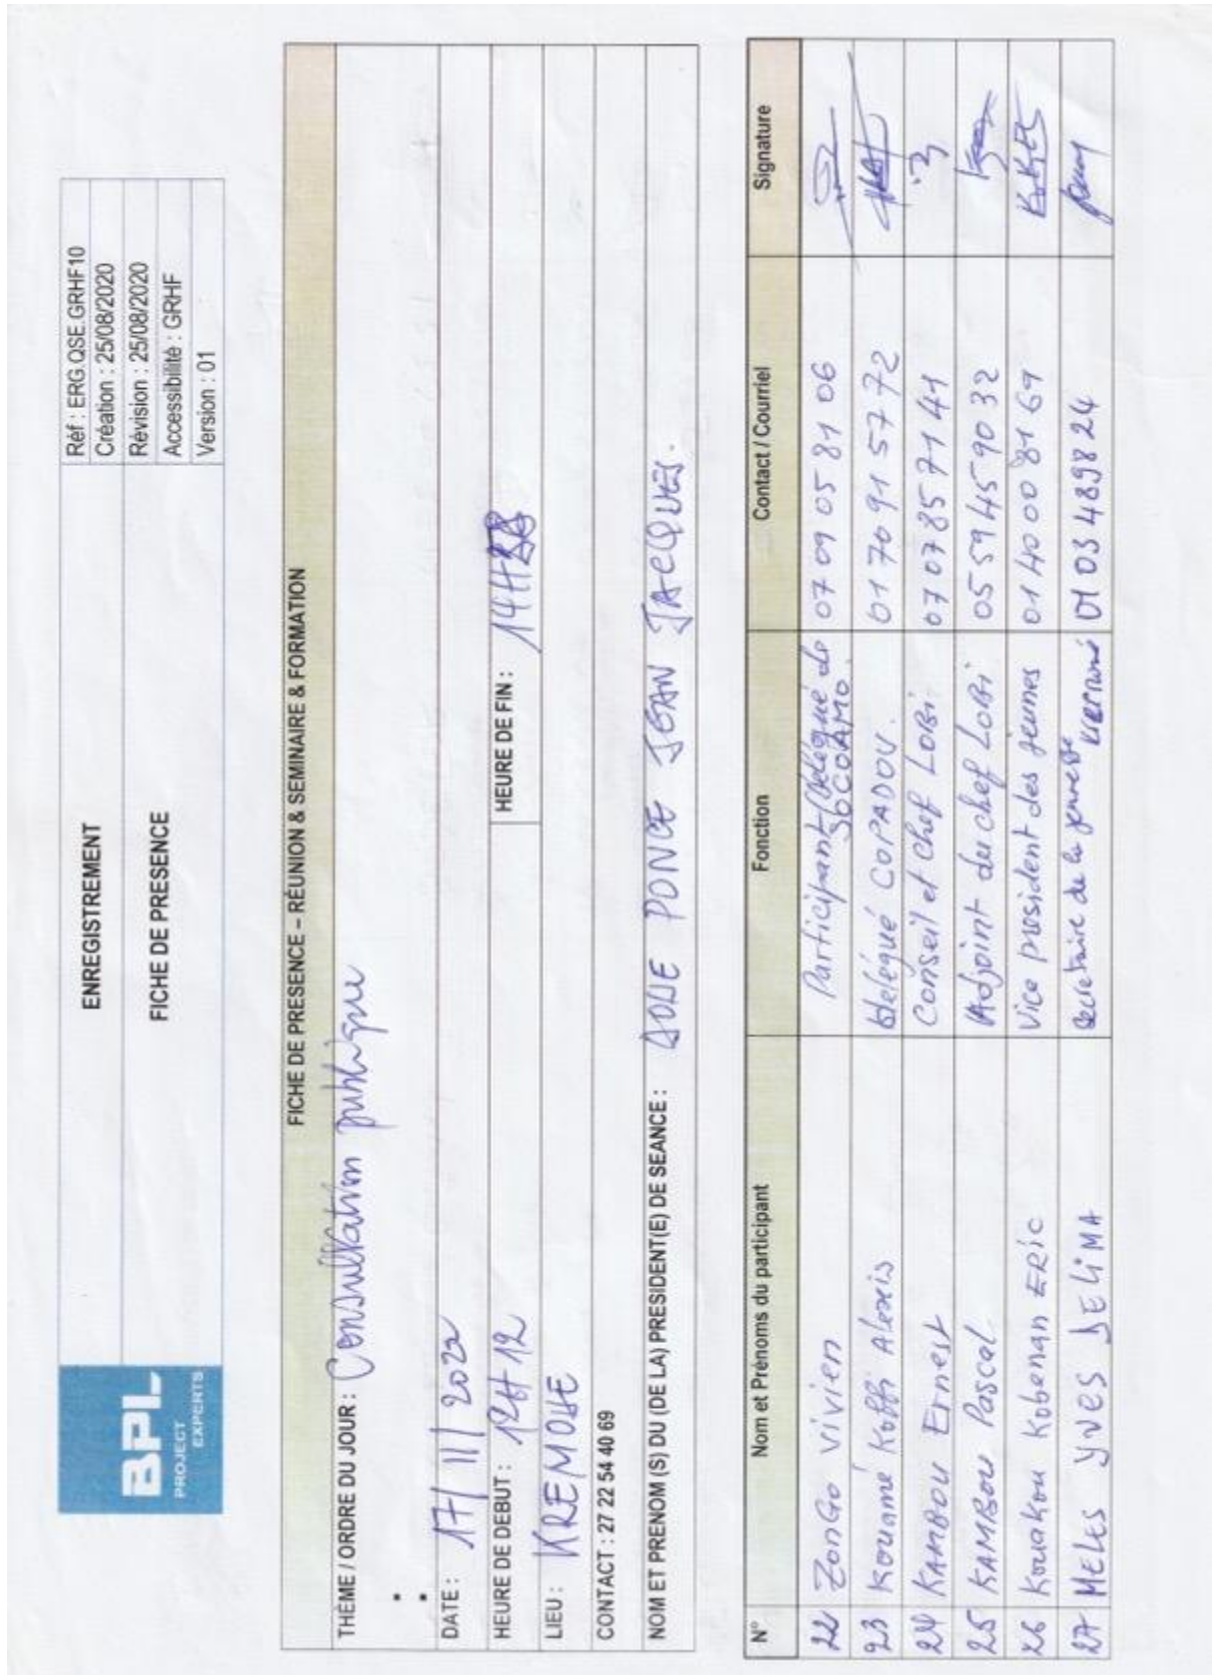 BPL
PROJECT
EXPERTS
ENREGISTREMENT
FICHE DE PRESENCE
Réf : ERG.QSE.GRHF10
Création : 25/08/2020
Révision : 25/08/2020
Accessibilité : GRHF
Version : 01
FICHE DE PRESENCE – RÉUNION & SEMINAIRE & FORMATION
THÈME / ORDRE DU JOUR : Consultation publique
DATE : 17/11/2022
HEURE DE DEBUT : 12H12 HEURE DE FIN : 14H
LIEU : KREMOUE
CONTACT : 27 22 54 40 69
NOM ET PRENOM (S) DU (DE LA) PRESIDENT(E) DE SEANCE : PONCE JEAN JACQUES.
N° Nom et Prénoms du participant Fonction Contact / Courriel Signature
22 ZonGo vivien Participant/Délégué de SOCOAMO. 07 09 05 81 06
23 Kouamé Koffi Alexis Delégué COPADOU. 01 70 91 57 72
24 KAMBOU Ernest Conseil et Chef LOBi 07 07 85 71 41
25 KAMBOU Pascal Adjoint du chef LOBi 05 59 45 90 32
26 Kouakou Kobenan ERic Vice président des jeunes 01 40 00 81 69
27 MELES YVES DELiMA Secretaire de la jeunesse 01 03 48 98 24